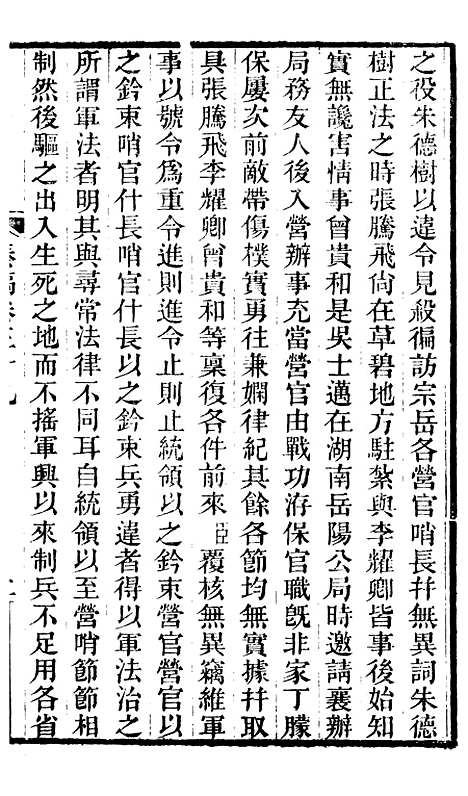 之役朱德樹以違令見殺徧訪宗岳各營官哨長幷無異詞朱德
樹正法之時張騰飛尙在草碧地方駐紮與李耀卿皆事後始知
實無讒害情事曾貴和是吳士邁在湖南岳陽公局時邀請襄辦
局務友人後入營辦事充當營官由戰功洊保官職旣非家丁朦
保屢次前敵帶傷樸實勇往兼嫻律紀其餘各節均無實據幷取
具張騰飛李耀卿曾貴和等稟復各件前來臣覆核無異竊維軍
事以號令爲重令進則進令止則止統領以之鈐束營官營官以
之鈐束哨官什長哨官什長以之鈐束兵勇違者得以軍法治之
所謂軍法者明其與尋常法律不同耳自統領以至營哨節節相
制然後驅之出入生死之地而不搖軍興以來制兵不足用各省